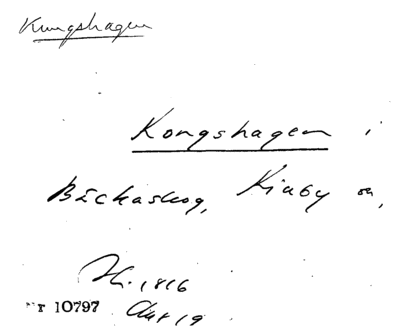 Kungshagen
Kongshagen i
Bäckaskog, Kiaby sn,
1816
Nr 10797 Akt 19